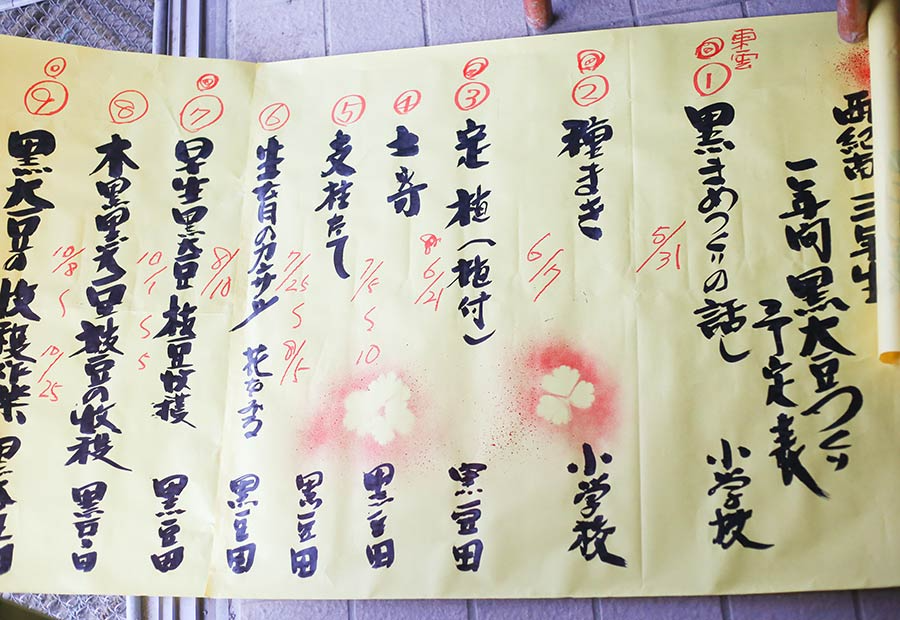 西紀南 三年生
一年間 黒大豆づくり
予定表
東雲
① 黒まめづくりの話し 小学校
5/31
② 種まき 小学校
6/17
③ 定植(植付) 黒豆田
6/21
④ 土寄 黒豆田
⑤ 支柱たて 黒豆田
7/5 〜 10
⑥ 生育のカンサツ 黒豆田
7/25 〜 8/5
⑦ 早生黒大豆 枝豆収穫 黒豆田
8/10
⑧ 本黒黒大豆 枝豆の収穫 黒豆田
10/1 〜 5
⑨ 黒大豆の収穫作業
10/8 〜 10/25